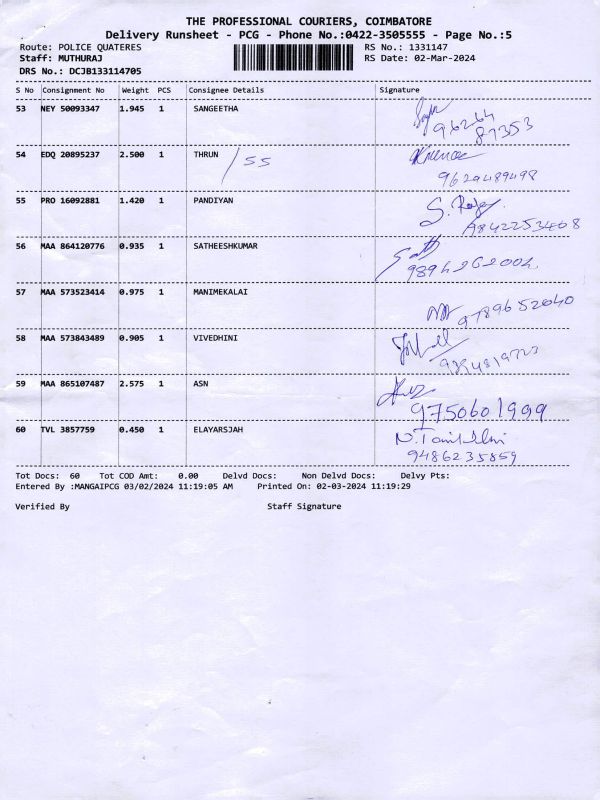 THE PROFESSIONAL COURIERS, COIMBATORE
Delivery Runsheet - PCG - Phone No.:0422-3505555 - Page No.:5
Route: POLICE QUATERES RS No.: 1331147
Staff: MUTHURAJ RS Date: 02-Mar-2024
DRS No.: DCJB133114705
S No Consignment No Weight PCS Consignee Details Signature
53 NEY 50093347 1.945 1 SANGEETHA
96264
87353
54 EDQ 20895237 2.500 1 THRUN / 55
9629489498
55 PRO 16092881 1.420 1 PANDIYAN
9842253408
56 MAA 864120776 0.935 1 SATHEESHKUMAR
9894262004
57 MAA 573523414 0.975 1 MANIMEKALAI
9789652040
58 MAA 573843489 0.905 1 VIVEDHINI
59 MAA 865107487 2.575 1 ASN
9750601999
60 TVL 3857759 0.450 1 ELAYARSJAH
9486235859
Tot Docs: 60 Tot COD Amt: 0.00 Delvd Docs: Non Delvd Docs: Delvy Pts:
Entered By :MANGAIPCG 03/02/2024 11:19:05 AM Printed On: 02-03-2024 11:19:29
Verified By Staff Signature